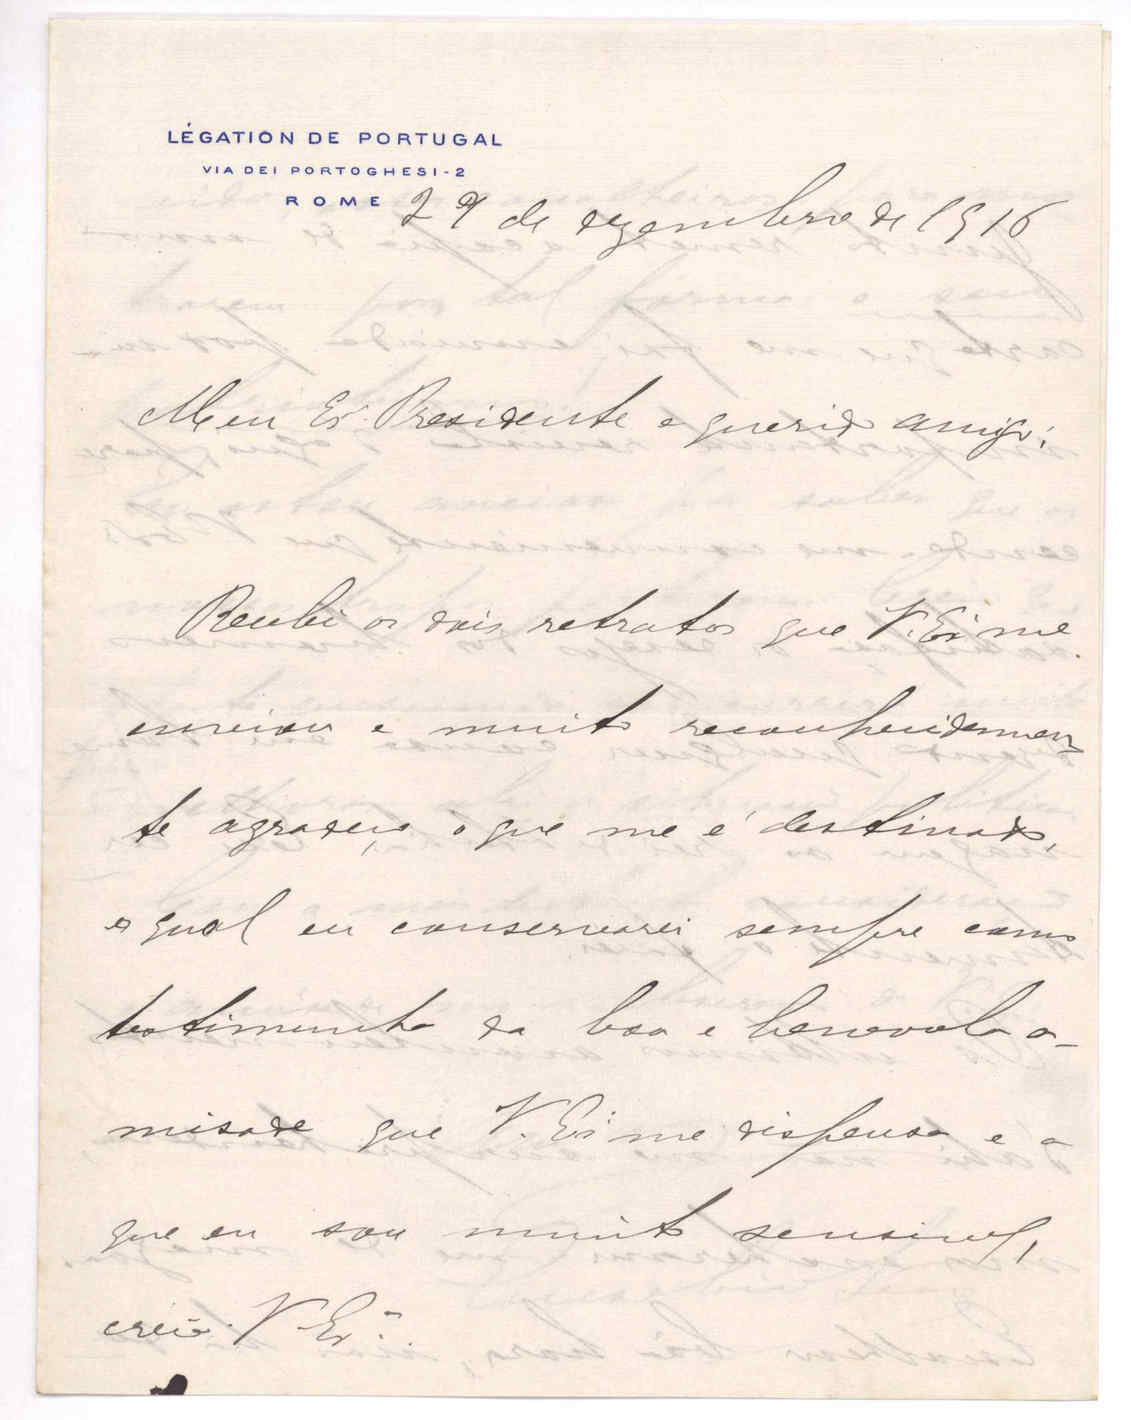 LÉGATION DE PORTUGAL
VIA DEI PORTOGHESI-2
ROME
29 de dezembro de 1916
Meu Exº Presidente e querido amigo:
Recebi os dois retratos que V. Exª me
enviou e muito reconhecidamen-
te agradeço o que me é destinado,
o qual eu conservarei sempre como
testimunho da boa e benevola a-
misade que V. Exª me dispensa e a
que eu sou muito sensivel,
creia V. Exª.